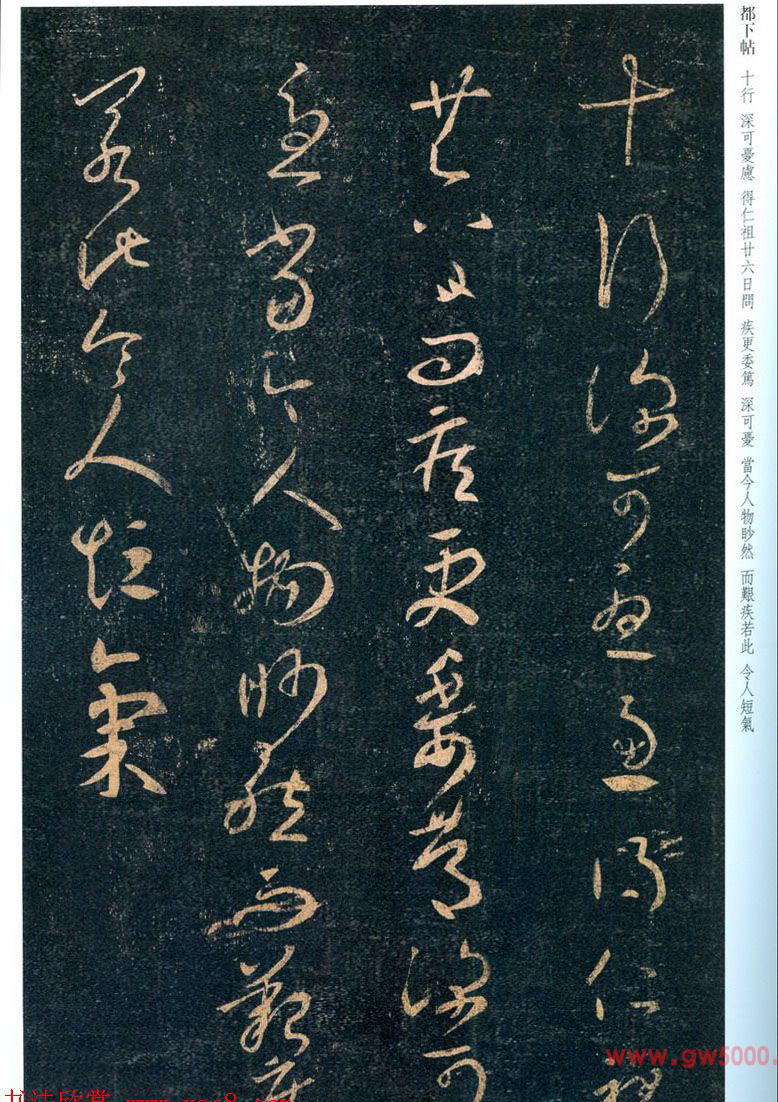 都下帖 十行 深可憂慮 得仁祖廿六日問 疾更委篤 深可憂 當今人物眇然 而艱疾若此 令人短氣
十行深可憂慮得仁祖
廿六日問疾更委篤深可
憂當今人物眇然而艱疾
若此令人短氣
www.gw5000.
书法欣赏 www.yac8.com